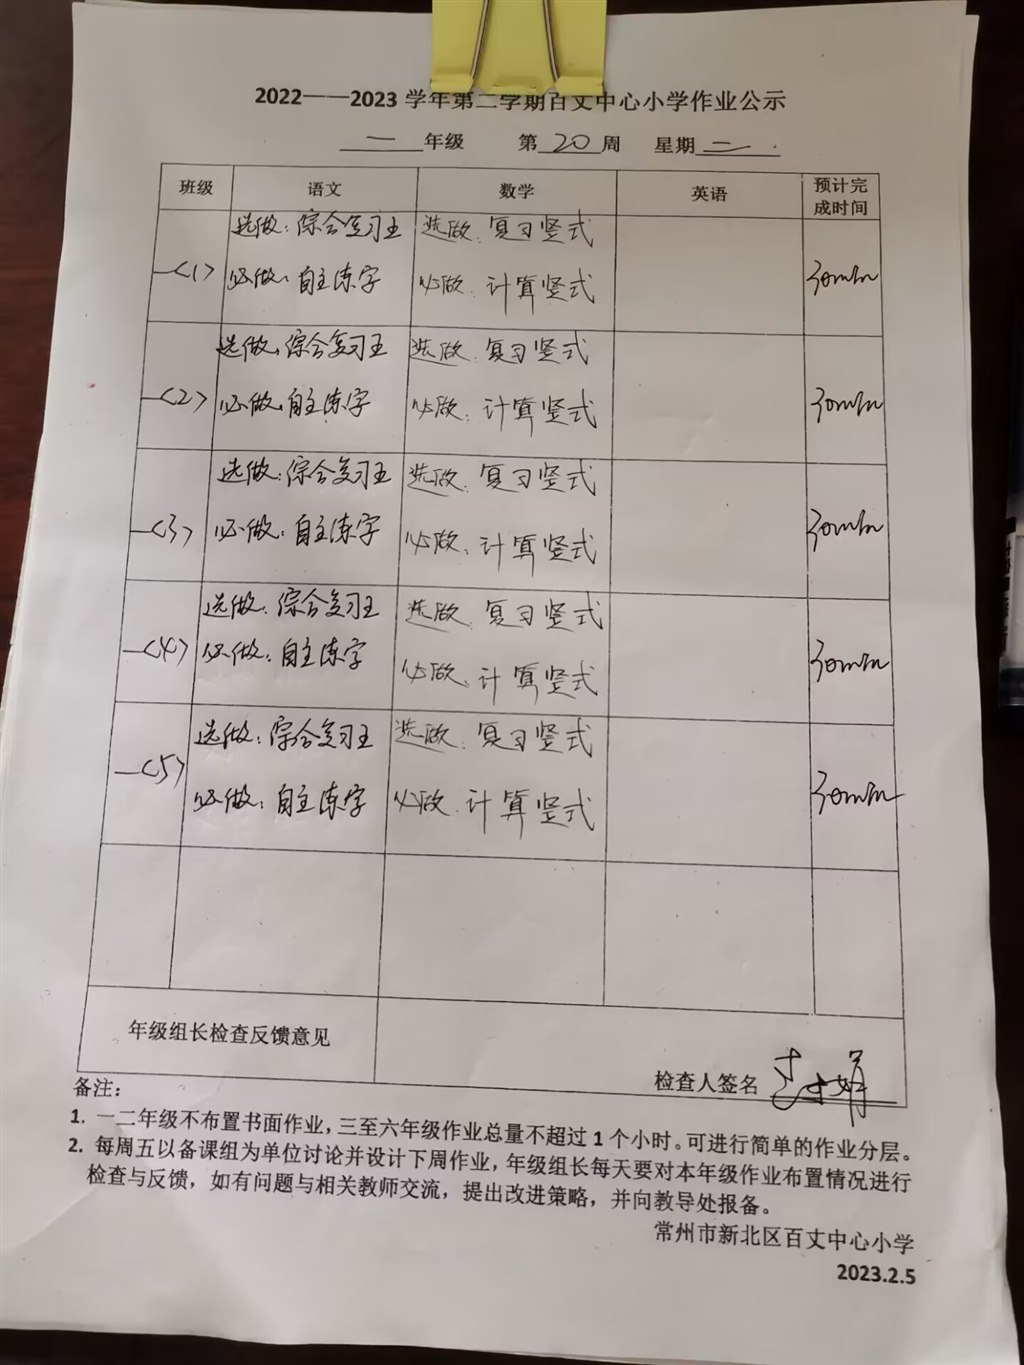 2022——2023 学年第二学期百丈中心小学作业公示
一 年级 第 20 周 星期 二
班级 语文 数学 英语 预计完成时间
一(1) 选做:综合复习五 选做:复习竖式 30min
必做:自主练字 必做:计算竖式
一(2) 选做:综合复习五 选做:复习竖式 30min
必做:自主练字 必做:计算竖式
一(3) 选做:综合复习五 选做:复习竖式 30min
必做:自主练字 必做:计算竖式
一(4) 选做:综合复习五 选做:复习竖式 30min
必做:自主练字 必做:计算竖式
一(5) 选做:综合复习五 选做:复习竖式 30min
必做:自主练字 必做:计算竖式
年级组长检查反馈意见
检查人签名
备注:
1. 一二年级不布置书面作业,三至六年级作业总量不超过 1 个小时。可进行简单的作业分层。
2. 每周五以备课组为单位讨论并设计下周作业,年级组长每天要对本年级作业布置情况进行
检查与反馈,如有问题与相关教师交流,提出改进策略,并向教导处报备。
常州市新北区百丈中心小学
2023.2.5